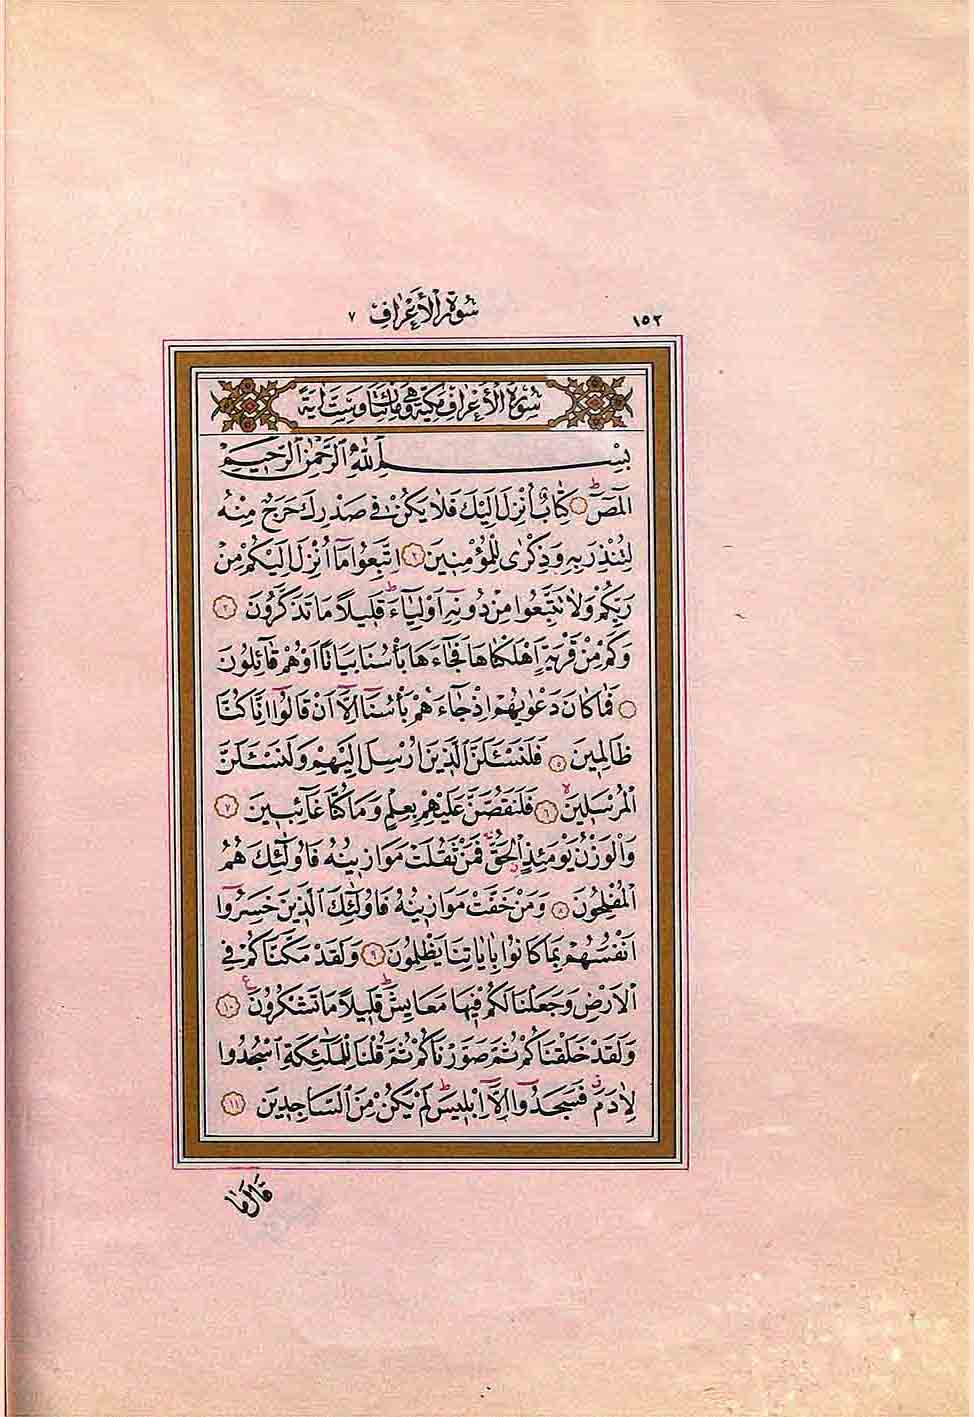 ١٥٢
سُورَةُ الْأَعْرَافِ ٧
سُورَةُ الْأَعْرَافِ مَكِّيَّةٌ وَهِيَ مِائَتَانِ وَسِتُّ اٰيَةً
بِسْمِ اللّٰهِ الرَّحْمٰنِ الرَّحِيمِ
الٓمٓصٓ ۚ ١ كِتَابٌ اُنْزِلَ اِلَيْكَ فَلَا يَكُنْ فٖي صَدْرِكَ حَرَجٌ مِنْهُ
لِتُنْذِرَ بِهٖ وَذِكْرٰى لِلْمُؤْمِنٖينَ ٢ اِتَّبِعُوا مَٓا اُنْزِلَ اِلَيْكُمْ مِنْ
رَبِّكُمْ وَلَا تَتَّبِعُوا مِنْ دُونِهٖٓ اَوْلِيَٓاءَ ط قَلٖيلًا مَا تَذَكَّرُونَ ٣
وَكَمْ مِنْ قَرْيَةٍ اَهْلَكْنَاهَا فَجَٓاءَهَا بَأْسُنَا بَيَاتًا اَوْ هُمْ قَٓائِلُونَ
٤ فَمَا كَانَ دَعْوٰيهُمْ اِذْ جَٓاءَهُمْ بَأْسُنَٓا اِلَّٓا اَنْ قَالُٓوا اِنَّا كُنَّا
ظَالِمٖينَ ٥ فَلَنَسْـَٔلَنَّ الَّذٖينَ اُرْسِلَ اِلَيْهِمْ وَلَنَسْـَٔلَنَّ
الْمُرْسَلٖينَ لا ٦ فَلَنَقُصَّنَّ عَلَيْهِمْ بِعِلْمٍ وَمَا كُنَّا غَٓائِبٖينَ ٧
وَالْوَزْنُ يَوْمَئِذٍ الْحَقُّ ج فَمَنْ ثَقُلَتْ مَوَازٖينُهُ فَاُولٰٓئِكَ هُمُ
الْمُفْلِحُونَ ٨ وَمَنْ خَفَّتْ مَوَازٖينُهُ فَاُولٰٓئِكَ الَّذٖينَ خَسِرُٓوا
اَنْفُسَهُمْ بِمَا كَانُوا بِاٰيَاتِنَا يَظْلِمُونَ ٩ وَلَقَدْ مَكَّنَّاكُمْ فِي
الْاَرْضِ وَجَعَلْنَا لَكُمْ فٖيهَا مَعَايِشَ ط قَلٖيلًا مَا تَشْكُرُونَ ع ١٠
وَلَقَدْ خَلَقْنَاكُمْ ثُمَّ صَوَّرْنَاكُمْ ثُمَّ قُلْنَا لِلْمَلٰٓئِكَةِ اسْجُدُوا
لِاٰدَمَ ق فَسَجَدُٓوا اِلَّٓا اِبْلٖيسَ ط لَمْ يَكُنْ مِنَ السَّاجِدٖينَ ١١
قَالَ مَا